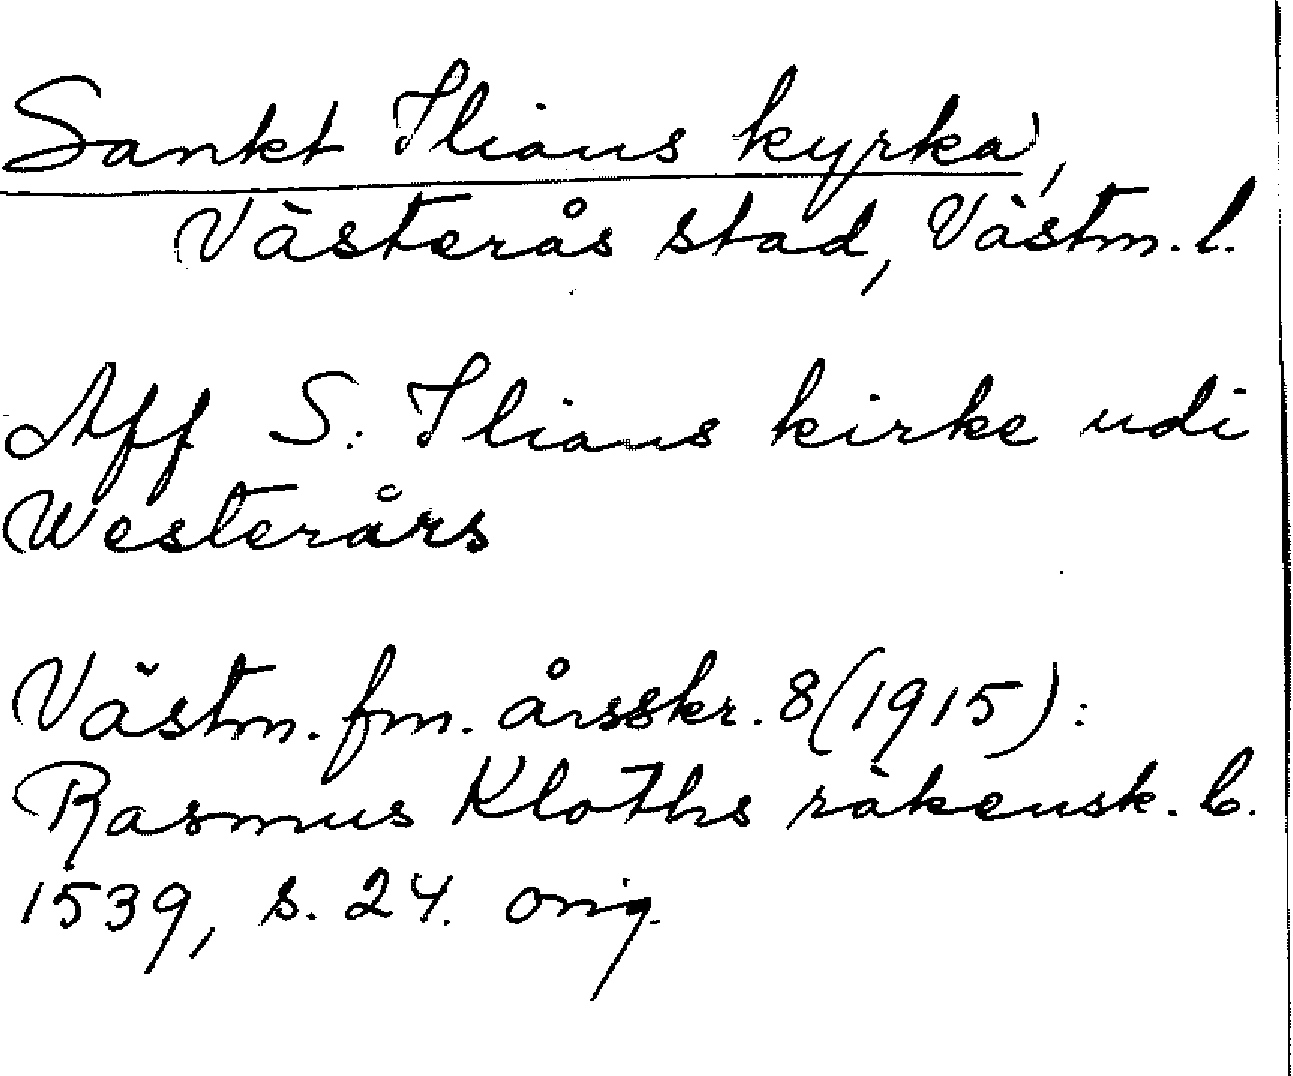 Sankt Ilians kyrka,
Västerås stad, Västm. l.
Aff S. Ilians kirke udi
Westerårs
Västm. fm. årsskr. 8 (1915):
Rasmus Kloths räkensk. b.
1539, s. 24. orig.